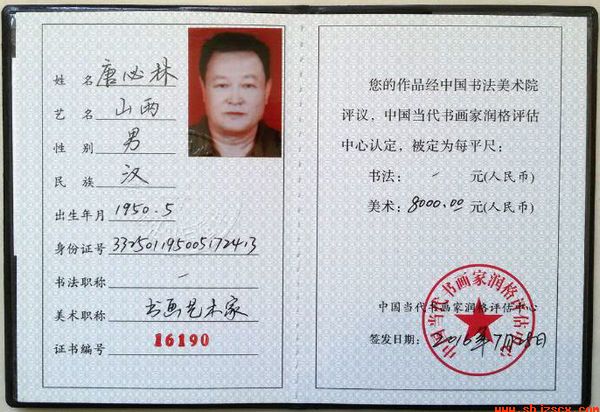 姓 名 唐必林
艺 名 山
性 别 男
民 族 汉
出生年月 1950.5
身份证号 332501195005172413
书法职称 一
美术职称 书画艺术家
证书编号 16190
您的作品经中国书法美术院
评议，中国当代书画家润格评估
中心认定，被定为每平尺：
书法： - 元(人民币)
美术：8000.00 元(人民币)
中国当代书画家润格评估中心
签发日期：2016年7月28日
中国当代书画家润格评估中心
www.shjzscx.com